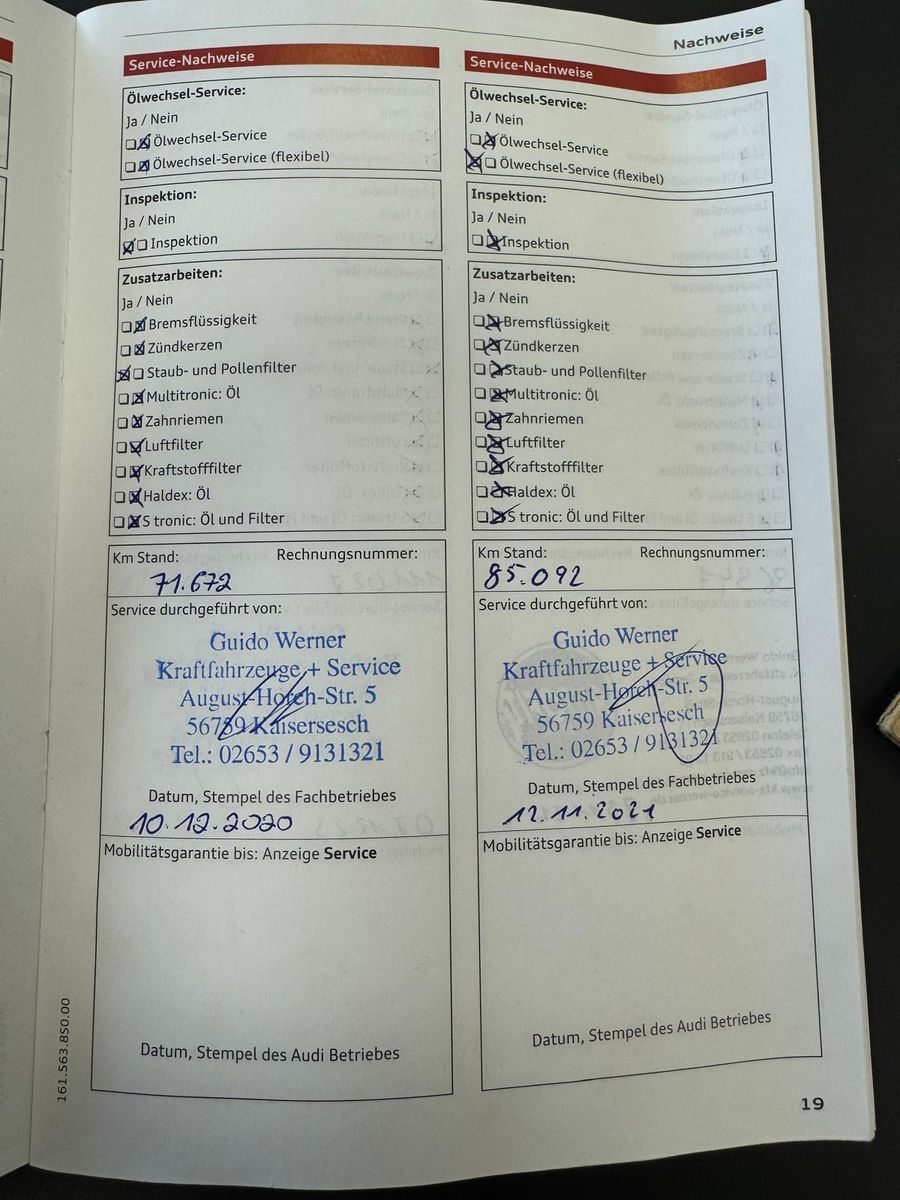 Nachweise
Service-Nachweise
Ölwechsel-Service:
Ja / Nein
Ölwechsel-Service
Ölwechsel-Service (flexibel)
Inspektion:
Ja / Nein
Inspektion
Zusatzarbeiten:
Ja / Nein
Bremsflüssigkeit
Zündkerzen
Staub- und Pollenfilter
Multitronic: Öl
Zahnriemen
Luftfilter
Kraftstofffilter
Haldex: Öl
S tronic: Öl und Filter
Km Stand: Rechnungsnummer:
71.672
Service durchgeführt von:
Guido Werner
Kraftfahrzeuge + Service
August-Horch-Str. 5
56759 Kaisersesch
Tel.: 02653 / 9131321
Datum, Stempel des Fachbetriebes
10.12.2020
Mobilitätsgarantie bis: Anzeige Service
Datum, Stempel des Audi Betriebes
Service-Nachweise
Ölwechsel-Service:
Ja / Nein
Ölwechsel-Service
Ölwechsel-Service (flexibel)
Inspektion:
Ja / Nein
Inspektion
Zusatzarbeiten:
Ja / Nein
Bremsflüssigkeit
Zündkerzen
Staub- und Pollenfilter
Multitronic: Öl
Zahnriemen
Luftfilter
Kraftstofffilter
Haldex: Öl
S tronic: Öl und Filter
Km Stand: Rechnungsnummer:
85.092
Service durchgeführt von:
Guido Werner
Kraftfahrzeuge + Service
August-Horch-Str. 5
56759 Kaisersesch
Tel.: 02653 / 9131321
Datum, Stempel des Fachbetriebes
12.11.2021
Mobilitätsgarantie bis: Anzeige Service
Datum, Stempel des Audi Betriebes
161.563.8S0.00
19